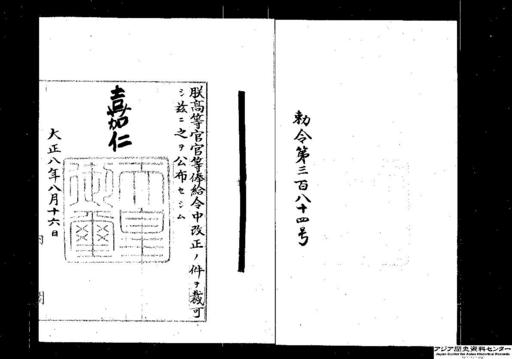 勅令第三百八十四号
朕高等官官等俸給令中改正ノ件ヲ裁可
シ茲ニ之ヲ公布セシム
嘉仁
天皇御璽
大正八年八月十六日
内
アジア歴史資料センター
Japan Center for Asian Historical Records